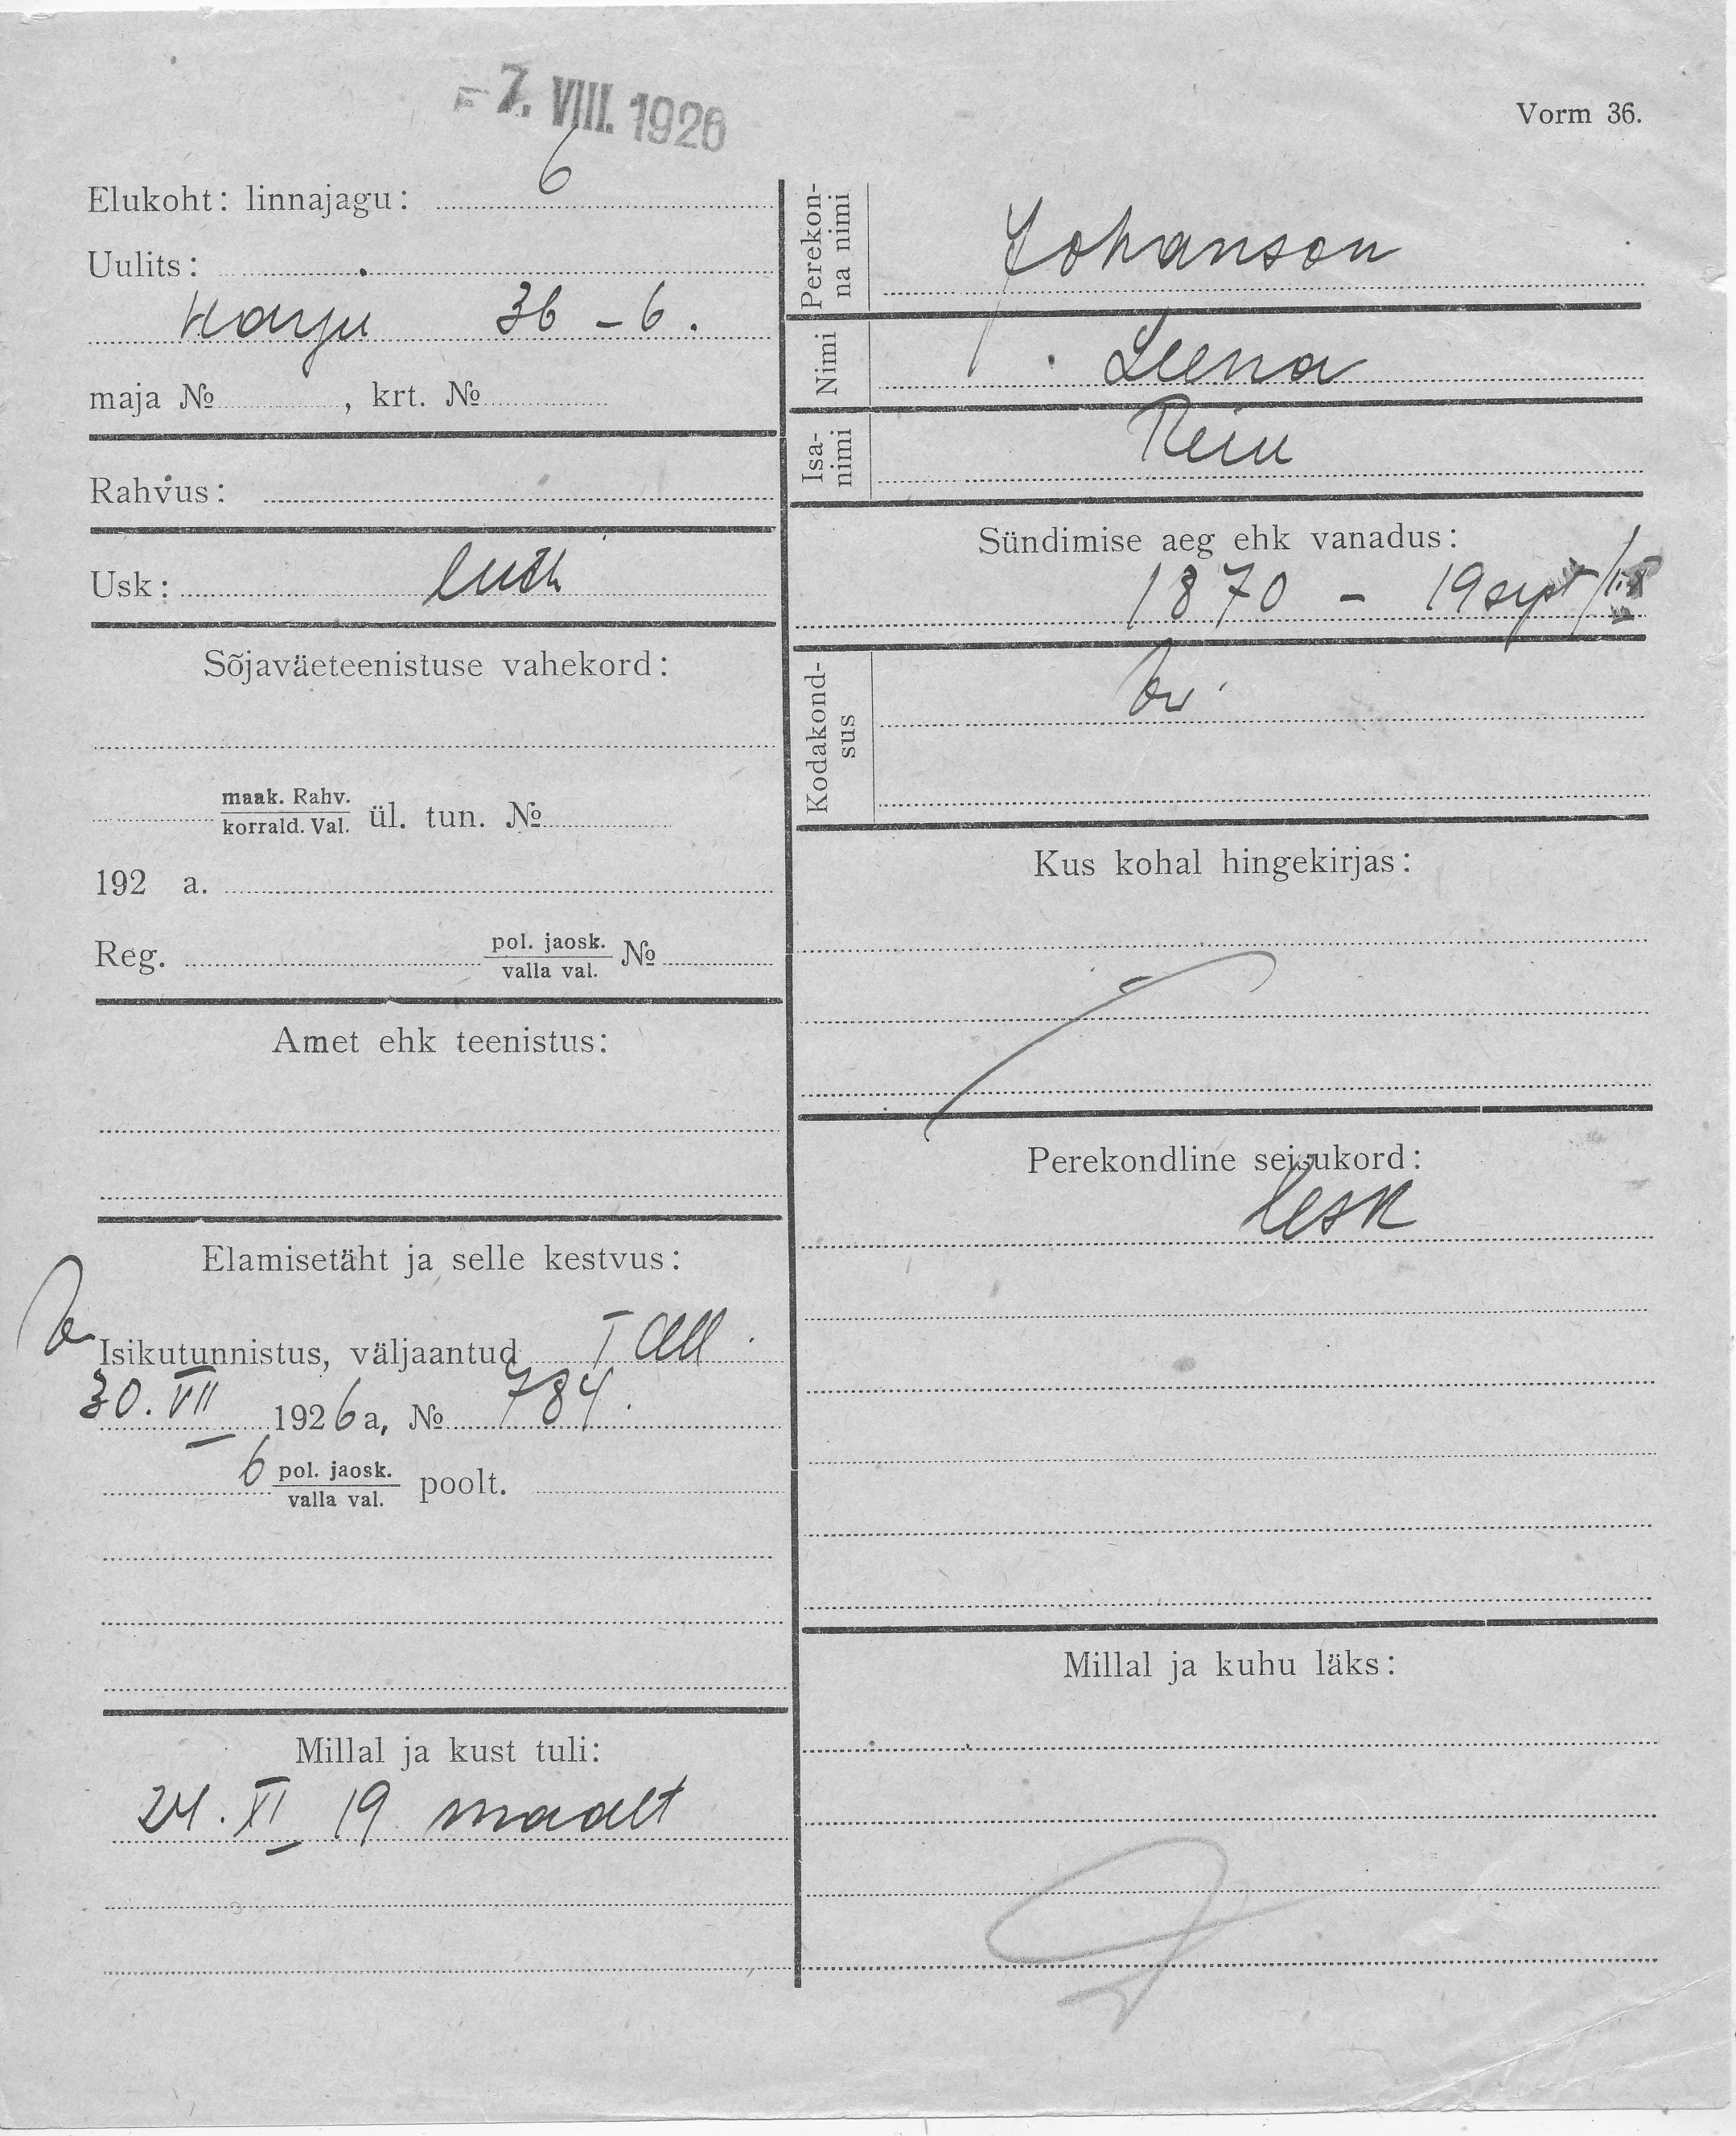 7. VIII. 1926
Vorm 36.
Elukoht: linnajagu: 6
Uulits:
Harju 36 - 6.
maja №, krt. №
Rahvus:
Usk: luth
Sõjaväeteenistuse vahekord:
maak. Rahv.
korrald. Val. ül. tun. №
192 a.
Reg. pol. jaosk. №
valla val.
Amet ehk teenistus:
Elamisetäht ja selle kestvus:
Isikutunnistus, väljaantud Tall.
30. VII 1926 a, № 784.
6 pol. jaosk. poolt.
valla val.
Millal ja kust tuli:
24. XI 19 maalt
Perekon-
na nimi
Johanson
Nimi
Leena
Isa-
nimi
Rein
Sündimise aeg ehk vanadus:
1870 - 19 sept
Kodakond-
sus
Kus kohal hingekirjas:
Perekondline seisukord:
lesk
Millal ja kuhu läks: